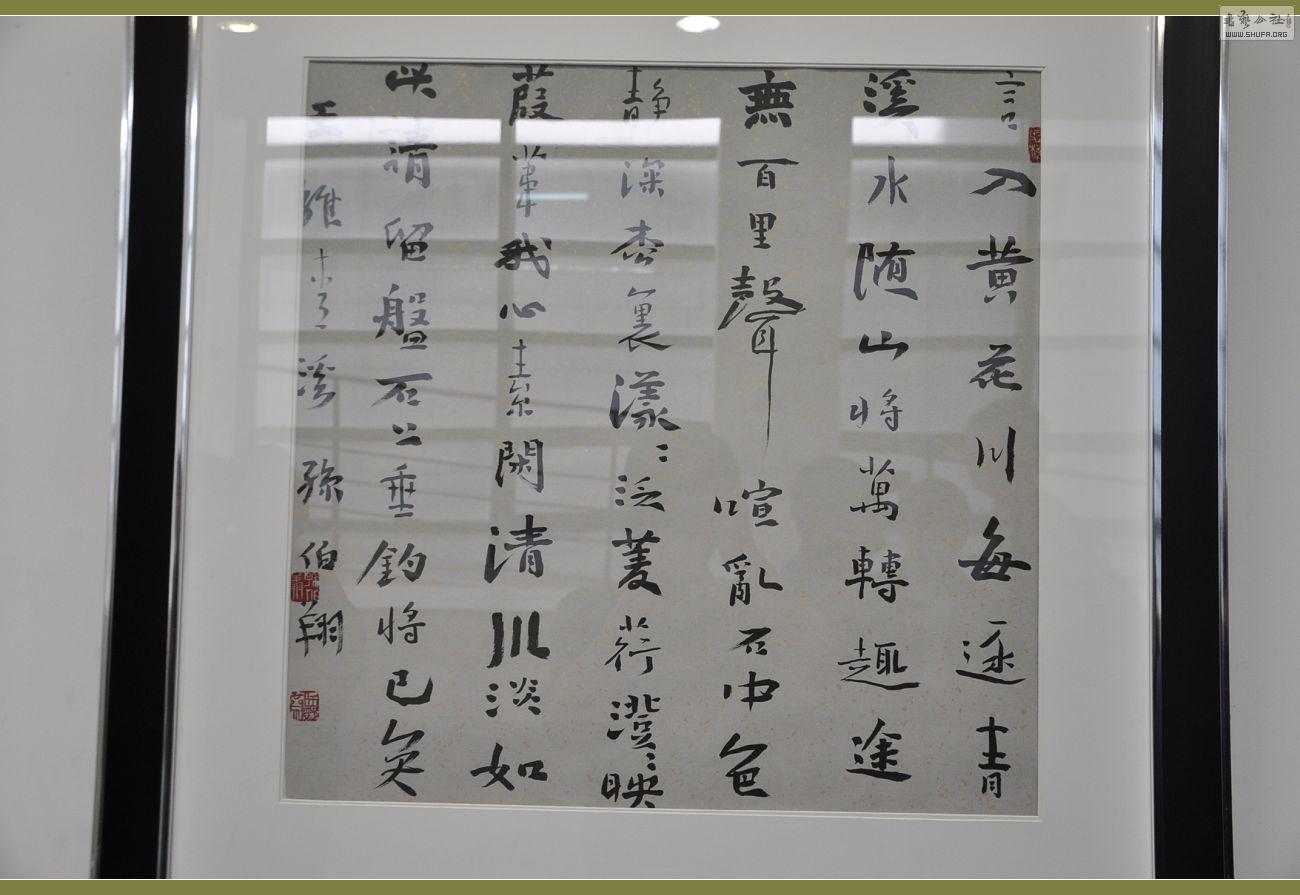 言入黄花川每逐青
溪水随山將萬轉趣途
無百里聲喧亂石中色
静深枩裏漾〻泛菱荇澄〻映
葭葦我心素閑清川淡如
此請留盤石上垂釣將已矣
王維青溪孫伯翔
書藝公社
WWW.SHUFA.ORG